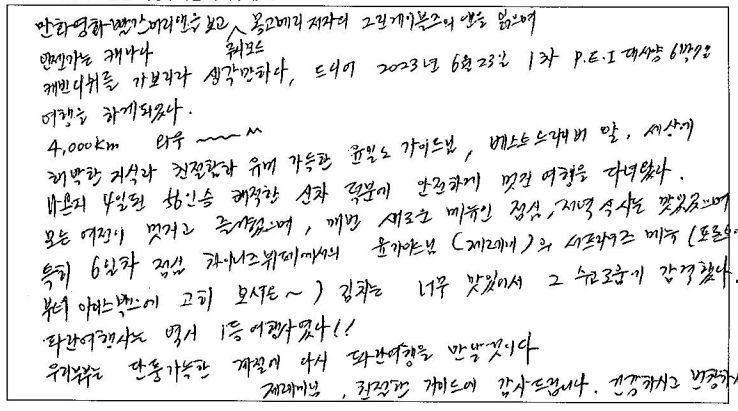 만화영화 빨간머리앤을 보고 루시모드 몽고메리 저자의 그린게이블즈의 앤을 읽으며
언젠가는 캐나다
캐빈디쉬를 가보리라 생각만하다, 드디어 2023년 6월23일 1차 P.E.I 대서양 6박7일
여행을 하게되었다.
4,000km 와우 ~~~~
해박한 지식과 친절함과 유머 가득한 윤일도 가이드님, 베스트드라이버 말, 세상에
나온지 4일된 56인승 쾌적한 신차 덕분에 안전하게 멋진 여행을 다녀왔다.
모든 여정이 멋지고 즐거웠으며, 매번 새로운 메뉴인 점심, 저녁 식사는 맛있었으며
특히 6일차 점심 차이니즈뷔페에서의 윤가이드님 (제레미)의 서프라이즈 메뉴 (
부터 아이스박스에 고히 모셔온~) 김치는 너무 맛있어서 그 수고로움에 감격했다.
파란여행사는 역시 1등여행사였다!!
우리부부는 단풍가득한 계절에 다시 파란여행을 만날것이다
제레미님, 친절한 가이드에 감사드립니다. 건강하시고